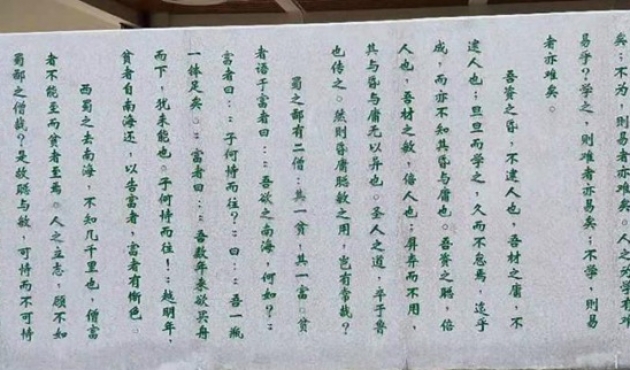 矣；不为，则易者亦难矣。人之为学有难
易乎？学之，则难者亦易矣；不学，则易
者亦难矣。
吾资之昏，不逮人也，吾材之庸，不
逮人也；旦旦而学之，久而不怠焉，迄乎
成，而亦不知其昏与庸也。吾资之聪，倍
人也，吾材之敏，倍人也；屏弃而不用，
其与昏与庸无以异也。圣人之道，卒于鲁
也传之。然则昏庸聪敏之用，岂有常哉？
蜀之鄙有二僧：其一贫，其一富。贫
者语于富者曰：“吾欲之南海，何如？”
富者曰：“子何恃而往？”曰：“吾一瓶
一钵足矣。”富者曰：“吾数年来欲买舟
而下，犹未能也。子何恃而往！”越明年，
贫者自南海还，以告富者，富者有惭色。
西蜀之去南海，不知几千里也，僧富
者不能至而贫者至焉。人之立志，顾不如
蜀鄙之僧哉？是故聪与敏，可恃而不可恃